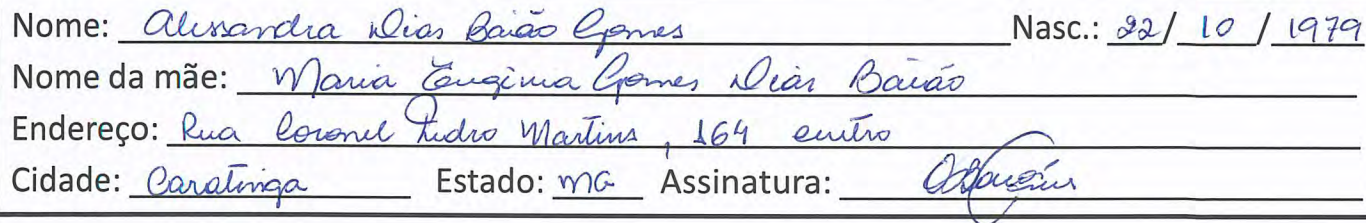 Nome: Alessandra Dias Baião Gomes Nasc.: 22/ 10 / 1979
Nome da mãe: Maria Eugênia Gomes Dias Baião
Endereço: Rua Coronel Pedro Martins, 164 centro
Cidade: Caratinga Estado: MG Assinatura: